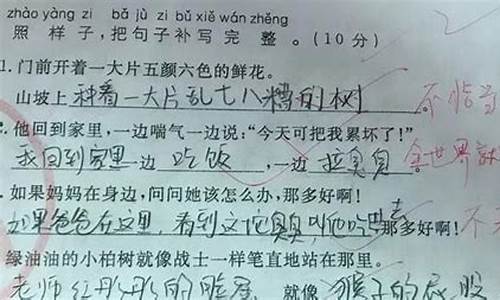 zhào yàng zi bǎ jù zi bǔ xiě wán zhěng
照样子，把句子补写完整。（10分）
1.门前开着一大片五颜六色的鲜花。
山坡上种着一大片乱七八糟的树。不恰当
他回到家里，一边喘气一边说：“今天可把我累坏了！”
我回到家里一边吃饭，一边拉臭臭 全世界就
.如果妈妈在身边，问问她该怎么办，那多好啊！
如果爸爸在这里，看到这坨臭臭叫他吃去 那多好啊！不
绿油油的小柏树就像战士一样笔直地站在那里。
老师红彤彤的脸蛋就像猴子的屁股